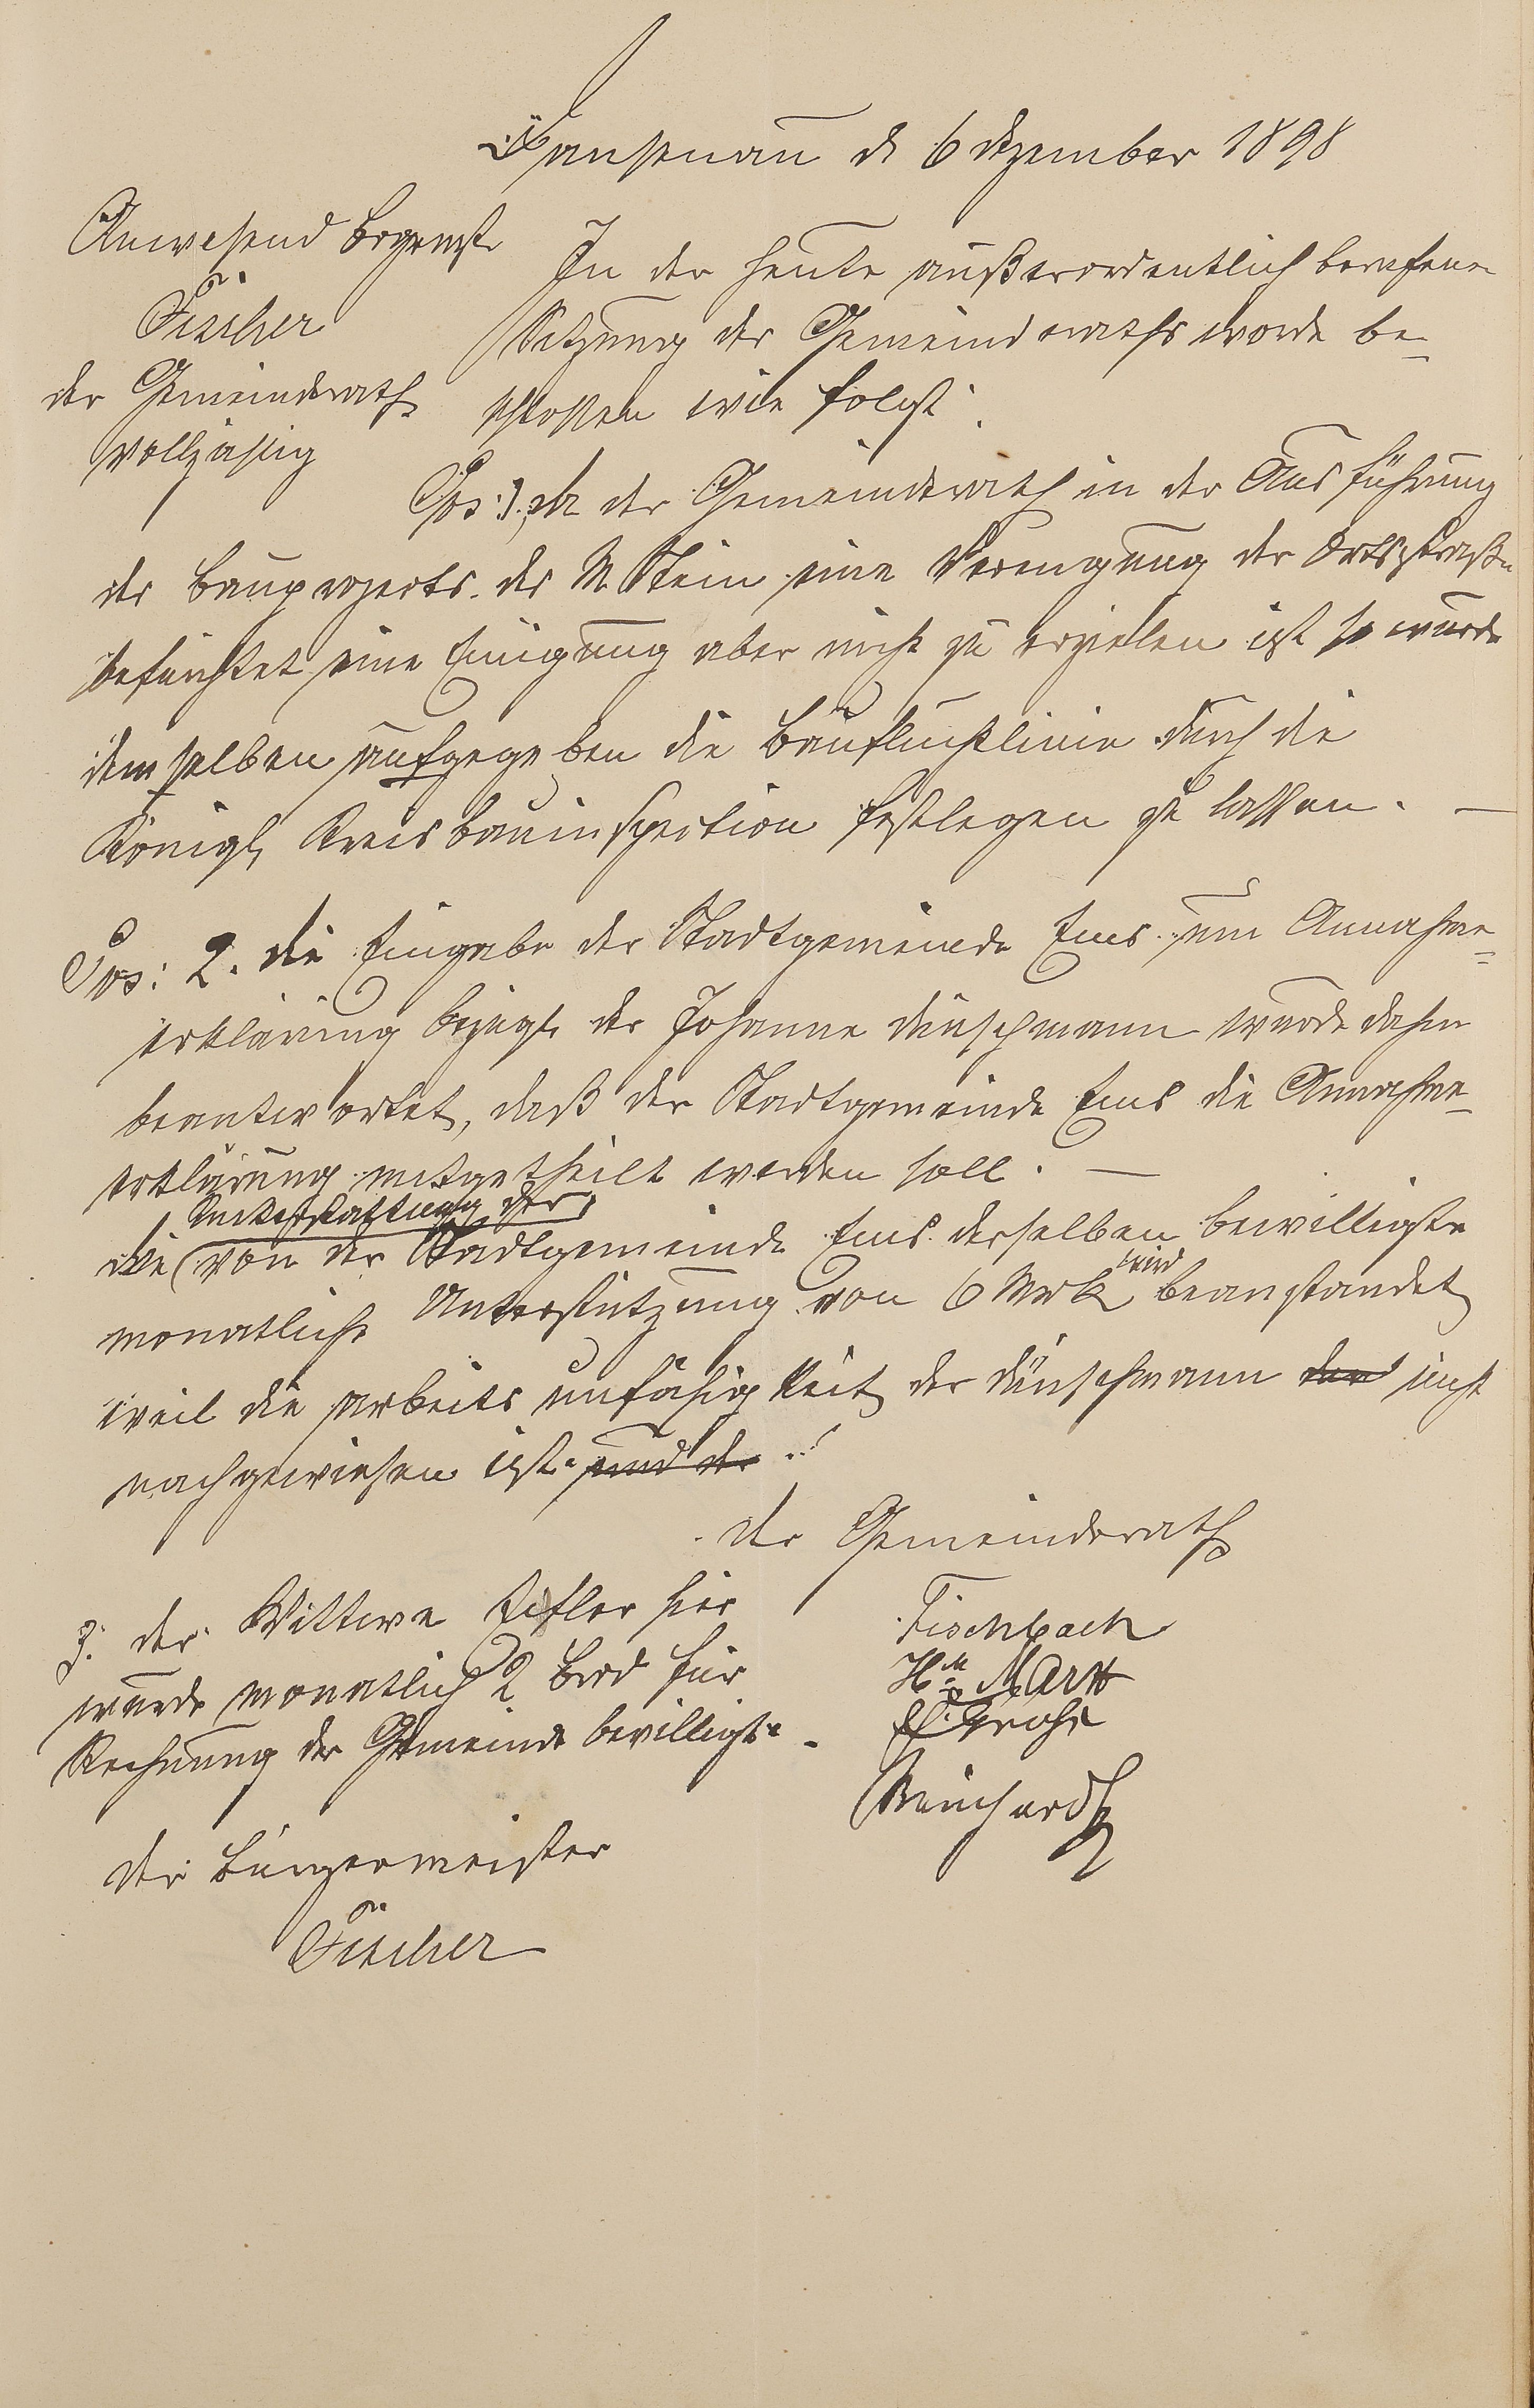 Dausenau d 6 Dezember 1898
Anwesend Brgrmst.
Fischer
der Gemeinderath
vollzählig
In der heute außerordentlich berufenen
Sitzung des Gemeinderaths wurde be-
schlossen wie folgt:
Pos: 1. Da der Gemeinderath in der Ausführung
des Bauprojects des Stein eine Verengung der Ortsstraße
befürchtet eine Einigung aber nicht zu erzielen ist so wurde
demselben aufgegeben die Baufluchtlinie durch die
Königl. Kreisbauinspection festlegen zu lassen. —
Pos: 2. Die Eingabe der Stadtgemeinde Ems um Annahme-
erklärung bezügl. der Johanne Dünschmann wurde dahin
beantwortet, daß der Stadtgemeinde Ems die Annahme-
erklärung mitgetheilt werden soll. —
Rückerstattung der
die von der Stadtgemeinde Ems derselben bewilligte
monatliche Unterstützung von 6 Mrk wird beanstandet
weil die Arbeitsunfähigkeit der Dünschmann nicht
nachgewiesen ist. und der
Der Gemeinderath
3. der Wittwe hier
wurde monatlich 2 Brod für
Rechnung der Gemeinde bewilligt. -
Fischbach
Hm Marx
Reinhardt
Der Bürgermeister
Fischer